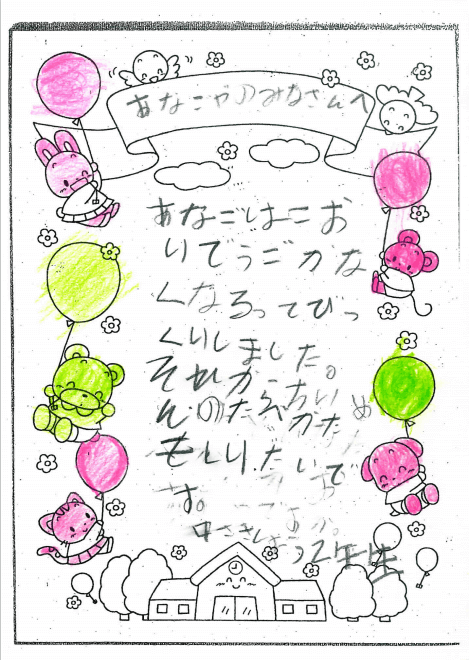 あなこやのみなさんへ
あなごはこお
りでうごかな
くなるってびっ
くりしました。
それから
のたべかた
もしりたいで
す。
2年生